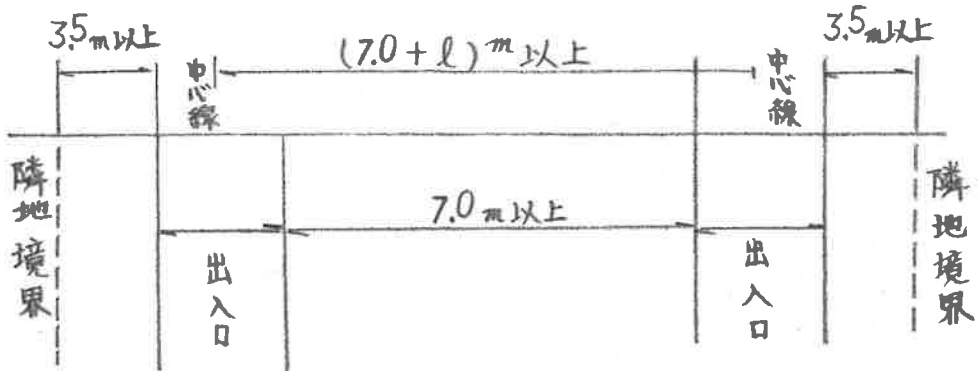 3.5m以上
(7.0+ℓ)m以上
3.5m以上
中心線
中心線
隣地境界
7.0m以上
隣地境界
出入口
出入口